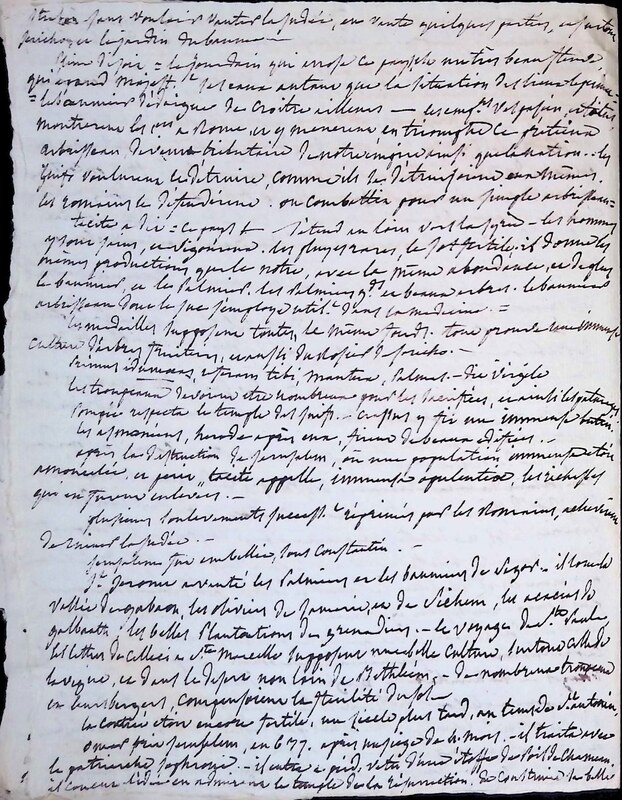 Strabon sans vouloir vanter la judée, en vante quelques parties, et surtout
jéricho et le jardin du baume
Pline dépose = le jourdain qui arrose ce pays est un très beau fleuve
qui autant que la situation des lieux le permet
= le baumier dédaigne de croître ailleurs — les emp.rs Vespasien, et titus
montrèrent les 1.ers à Rome, et y menèrent en triomphe ce précieux
arbrisseau devenu tributaire de notre empire ainsi que la nation. — les
juifs voulurent le détruire, comme ils se détruisirent eux mêmes.
les romains le défendirent. on combattit pour un simple arbrisseau =
tacite a dit = ce pays s'étend au loin vers la syrie — les hommes
y sont sains, et vigoureux. les pluyes rares, le sol fertile. il donne les
mêmes productions que le notre, avec la même abondance, et de plus
le baumier, et les palmiers. les palmiers g.ds et beaux arbres. le baumier
arbrisseau dont le suc s'employe util.t dans la médecine. =
les médailles supposent toutes, le même fonds. tout prouve une immense
culture d'arbres fruitiers, et aussi du rosier de jéricho. —
Primus idumaeas, referam tibi, mantua, palmas. — dit virgile
les troupeaux devoient être nombreux pour les sacrifices, et aussi les paturages
Pompée respecta le temple des juifs. — Crassus y fit un immense butin.
les asmonéens, hérode après eux, firent de beaux édifices. —
après la destruction de jerusalem, où une population immense étoit
amoncelée, et pour tacite appelle, immensae opulentiae, les richesses
qui en furent enlevées. —
plusieurs soulevements success.t réprimés par les Romains, achevèrent
de ruiner la judée. —
jerusalem fut embellie, sous Constantin. —
S.t Jerome a vanté les palmiers et les baumiers de Segor — il loue la
vallée de gabaon, les oliviers de samarie, et de Sichem, les acacias de
galbaath, les belles plantations de grenadiers. — le voyage de S.te Paule
les lettres de celleci à S.te Marcelle supposent une belle culture, surtout celle de
la vigne, et dans le desert non loin de Bethléem, — de nombreux troupeaux
et leurs bergers, compensoient la stérilité du sol —
la contrée étoit encore fertile, un siècle plus tard, au temps de S.t antonin.
omar prit jerusalem, en 637. après un siège de 4. mois. — il traita avec
le patriarche sophrone — il entra à pied, vêtu d'une étoffe de poil de chameau.
il conçut l'idée en admirant le temple de la résurrection, de construire sa belle